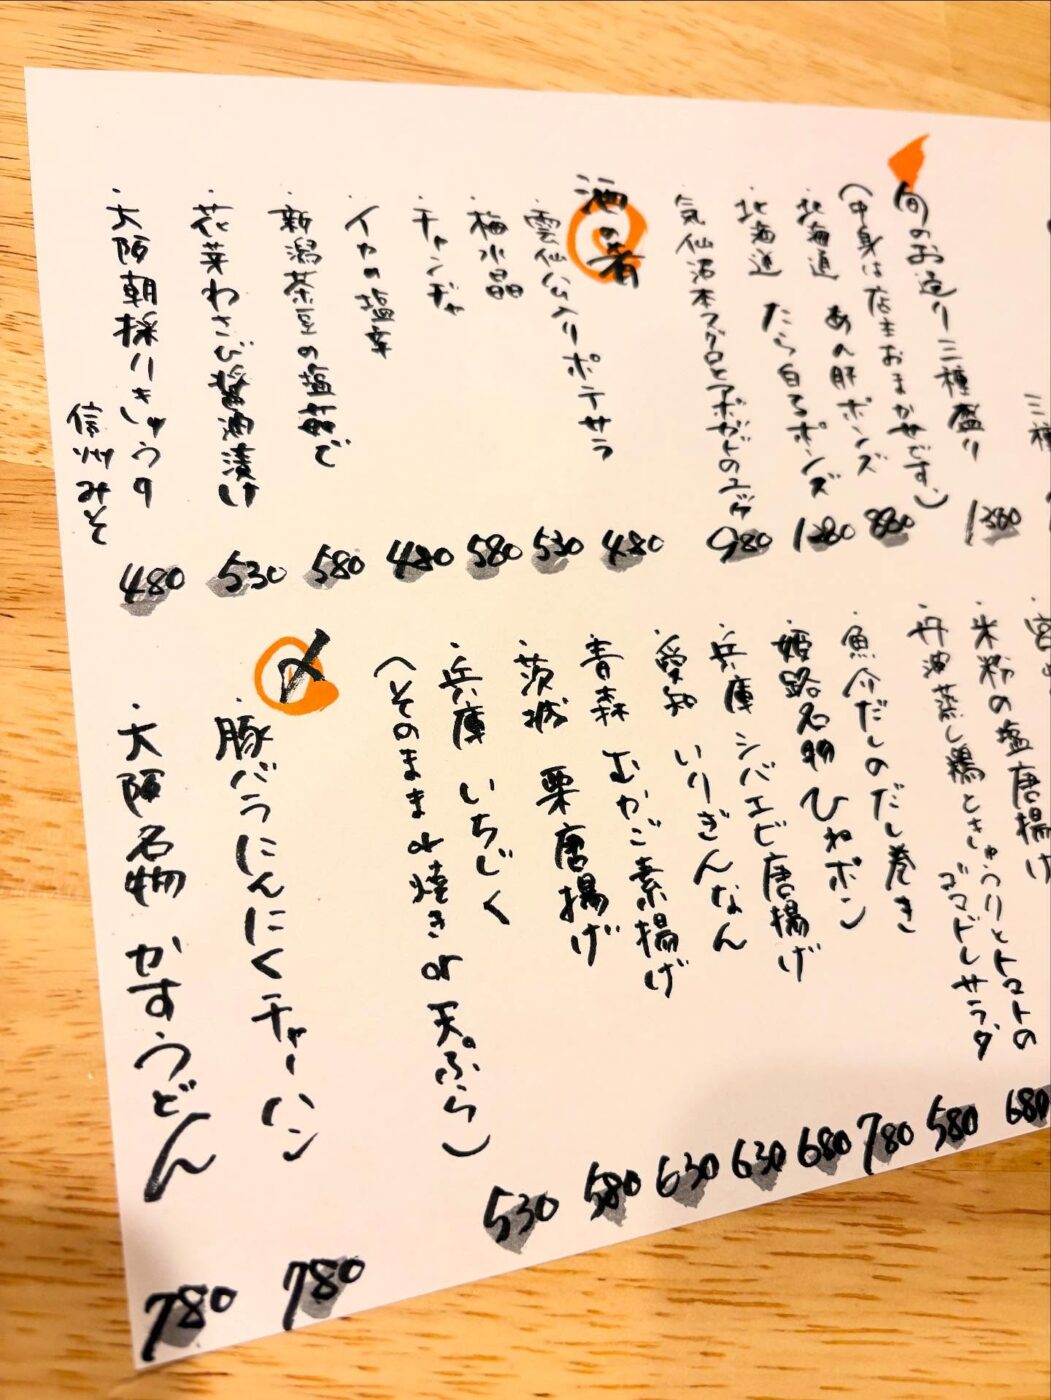 三種
旬のお造り三種盛り 1380
(中身は店主おまかせです。)
北海道 あん肝ポンズ 880
北海道 たら白子ポンズ 1280
気仙沼本マグロとアボガドのユッケ 980
酒の肴
・雲仙ハム入りポテサラ 480
・梅水晶 530
・チャンジャ 580
・イカの塩辛 480
・新潟茶豆の塩茹で 580
・花芽わさび醤油漬け 530
・大阪朝採りきゅうり
信州みそ 480
・米粉の塩唐揚げ 680
・丹波蒸し鶏ときゅうりとトマトの
ゴマドレサラダ 580
・魚介だしのだし巻き 780
・姫路名物ひねポン 680
・兵庫 シバエビ唐揚げ 630
・愛知 いりぎんなん 630
・青森 むかご素揚げ 580
・茨城 栗唐揚げ 530
・兵庫 いちじく
(そのまま or 焼き or 天ぷら)
〆
・豚バラにんにくチャーハン 780
・大阪名物 かすうどん 780